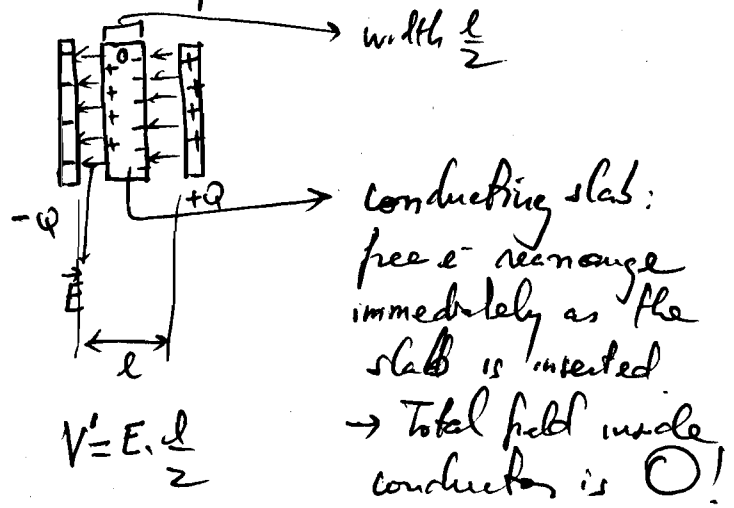 width l/2
0
-Q
+Q
E⃗
l
conducting slab:
free e⁻ rearrange
immediately as the
slab is inserted
V' = E. l/2
→ Total field inside
conductor is 0!